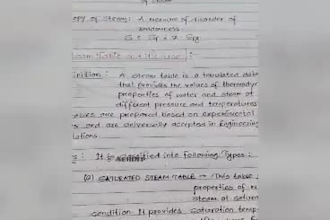 of steam
opy of Steam: A measure of disorder of
randomness.
Steam Table and its use:
inition: A steam table is a tabulated data
that provides the values of thermodyn
properties of water and steam at
different pressure and temperatures
values are prepared based on experimental
s and are universally accepted in Engineering
lations.
It is classified into following Types:
(a) SATURATED STEAM TABLE → This table
properties of
steam at satur
condition. It provides saturation temp